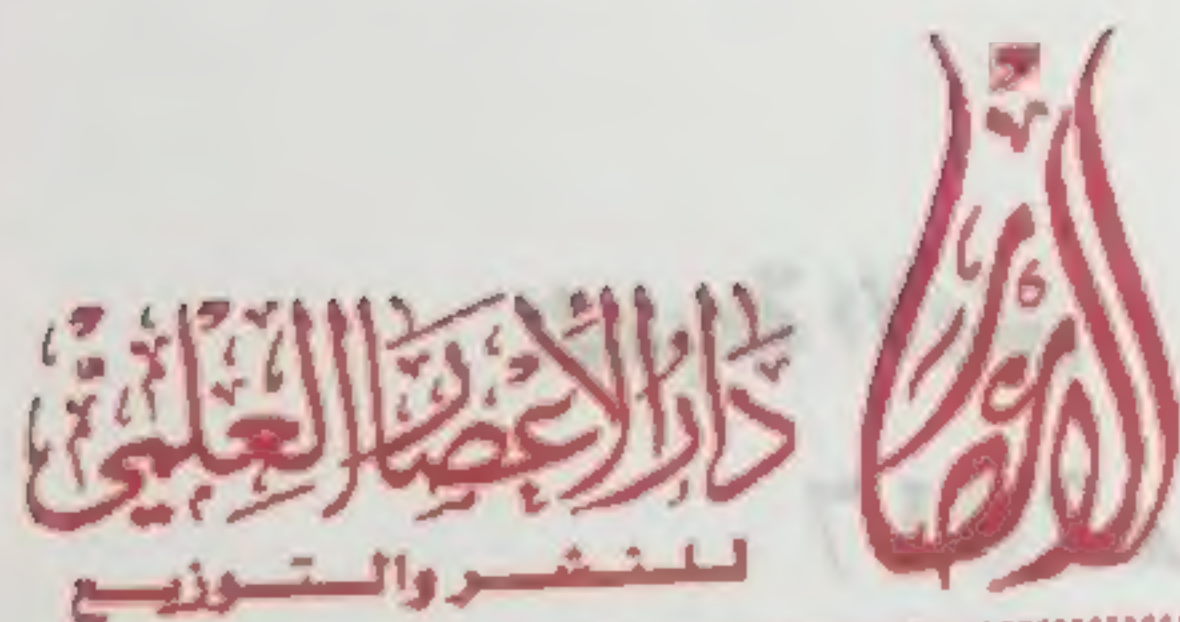 دار الإعصار العلمي
للنشر والتوزيع